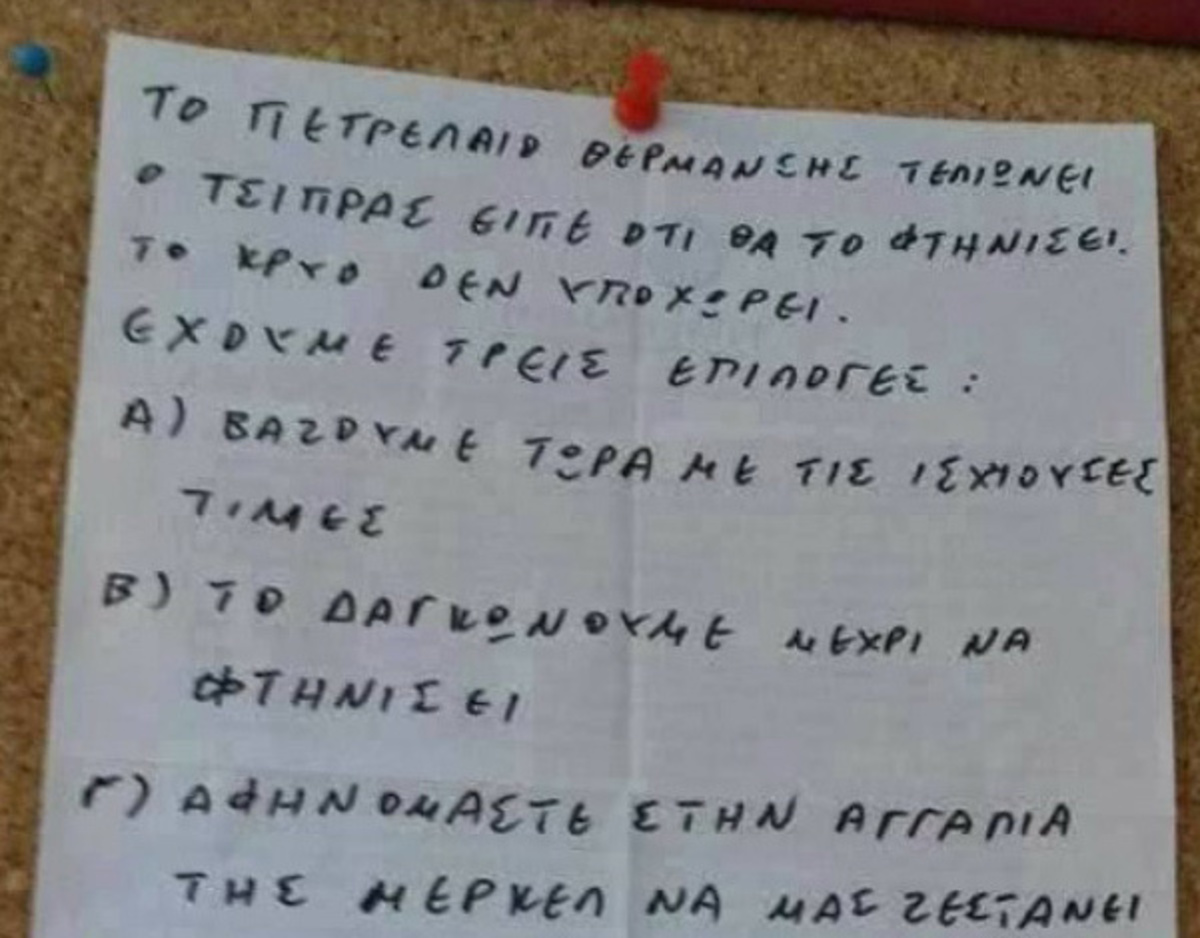 ΤΟ ΠΕΤΡΕΛΑΙΟ ΘΕΡΜΑΝΣΗΣ ΤΕΛΙΩΝΕΙ
Ο ΤΣΙΠΡΑΣ ΕΙΠΕ ΟΤΙ ΘΑ ΤΟ ΦΤΗΝΙΣΕΙ.
ΤΟ ΚΡΥΟ ΔΕΝ ΥΠΟΧΩΡΕΙ.
ΕΧΟΥΜΕ ΤΡΕΙΣ ΕΠΙΛΟΓΕΣ :
Α) ΒΑΖΟΥΜΕ ΤΩΡΑ ΜΕ ΤΙΣ ΙΣΧΙΟΥΣΕΣ
ΤΙΜΕΣ
Β) ΤΟ ΔΑΓΚΩΝΟΥΜΕ ΜΕΧΡΙ ΝΑ
ΦΤΗΝΙΣΕΙ
Γ) ΑΦΗΝΟΜΑΣΤΕ ΣΤΗΝ ΑΓΓΑΛΙΑ
ΤΗΣ ΜΕΡΚΕΛ ΝΑ ΜΑΣ ΖΕΣΤΑΝΕΙ